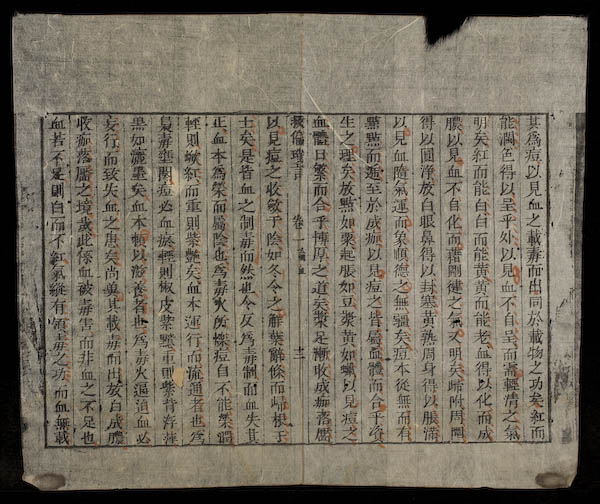 其為痘以見血之載毒而出同於載物之功矣紅而
能潤色得以呈乎外以見血不自呈而藉輕清之氣
明矣紅而能白白而能黃黃而能老血得以化而成
膿以見血不自化而藉關健之氣又明矣歸附周圓
得以圓淨放白眼鼻得以封塞黃熟周身得以脹滿
以見血隨氣運而象順德之無疆矣痘本從無而有
點點而通至於成痂以見痘之皆屬血體而合乎資
生之理矣放點如粟起脹如豆漿黃如蠟以見痘之
血體日繁而合乎博厚之道矣漿足漸收成痂落靨
卷一
以見痘之收斂于陰如冬令之解葉解條而歸根于
土矣是皆血之制毒而然也令反為毒制而血失其
正血本為榮而屬陰也為毒火所爍痘自不能榮謂
輕則嫩紅而重則紫艷矣血本運行而流通者也為
梟毒壅關痘必血瘀輕則椒皮紫黯重則紫背浮萍
黑如漆墨矣血本賴以滋養者也為毒火逼迫血必
妄行而致失血之患矣尚冀其載毒而出放白成膿
收痂落靨之境哉此係血被毒害而非血之不足也
血若不足則白而不紅氣縱有領毒之功而血無載